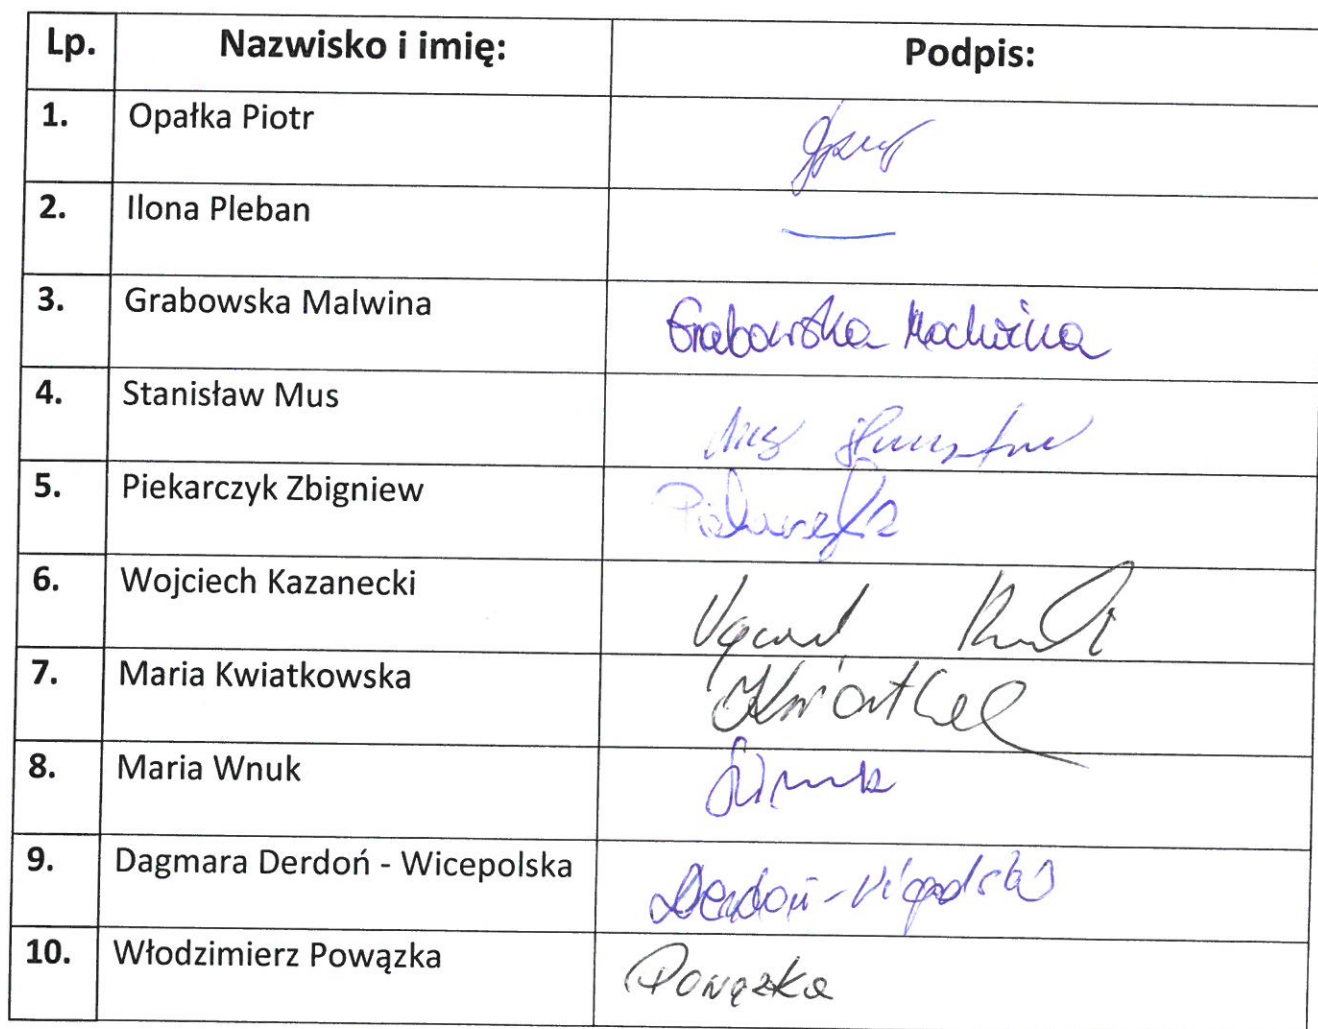 Lp. Nazwisko i imię: Podpis:
1. Opałka Piotr
2. Ilona Pleban —
3. Grabowska Malwina Grabowska Malwina
4. Stanisław Mus Mus
5. Piekarczyk Zbigniew
6. Wojciech Kazanecki
7. Maria Kwiatkowska
8. Maria Wnuk Wnuk
9. Dagmara Derdoń - Wicepolska Derdoń-
10. Włodzimierz Powązka Powązka